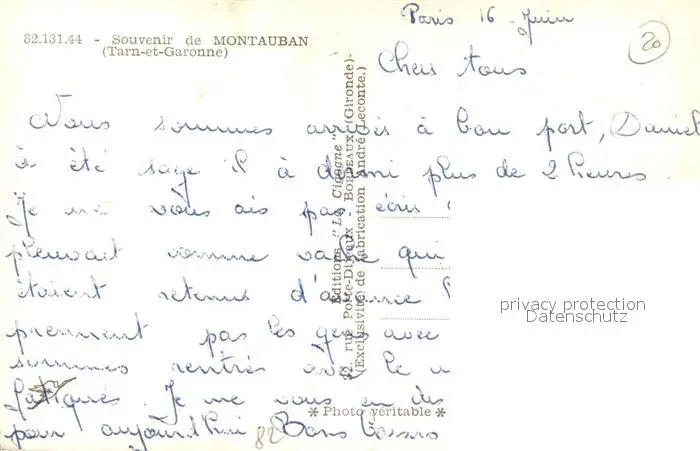 82.131.44 - Souvenir de MONTAUBAN
(Tarn-et-Garonne)
Paris 16 Juin
20
Chers tous
Nous sommes arrivés à bon port, Daniel
à été sage il à dormi plus de 2 heures.
Je ne vous ais pas écris
pleuvait comme vache qui
étaient retenus d'avance
prennent pas les gens avec
sommes rentrés avec le
fatigués. Je ne vous en dis
pour aujourd'hui Bons
82
Editions "La Cigogne"
32, rue Porte-Dijeaux - BORDEAUX (Gironde)
(Exclusivité de Fabrication André Leconte.)
* Photo véritable *
privacy protection
Datenschutz